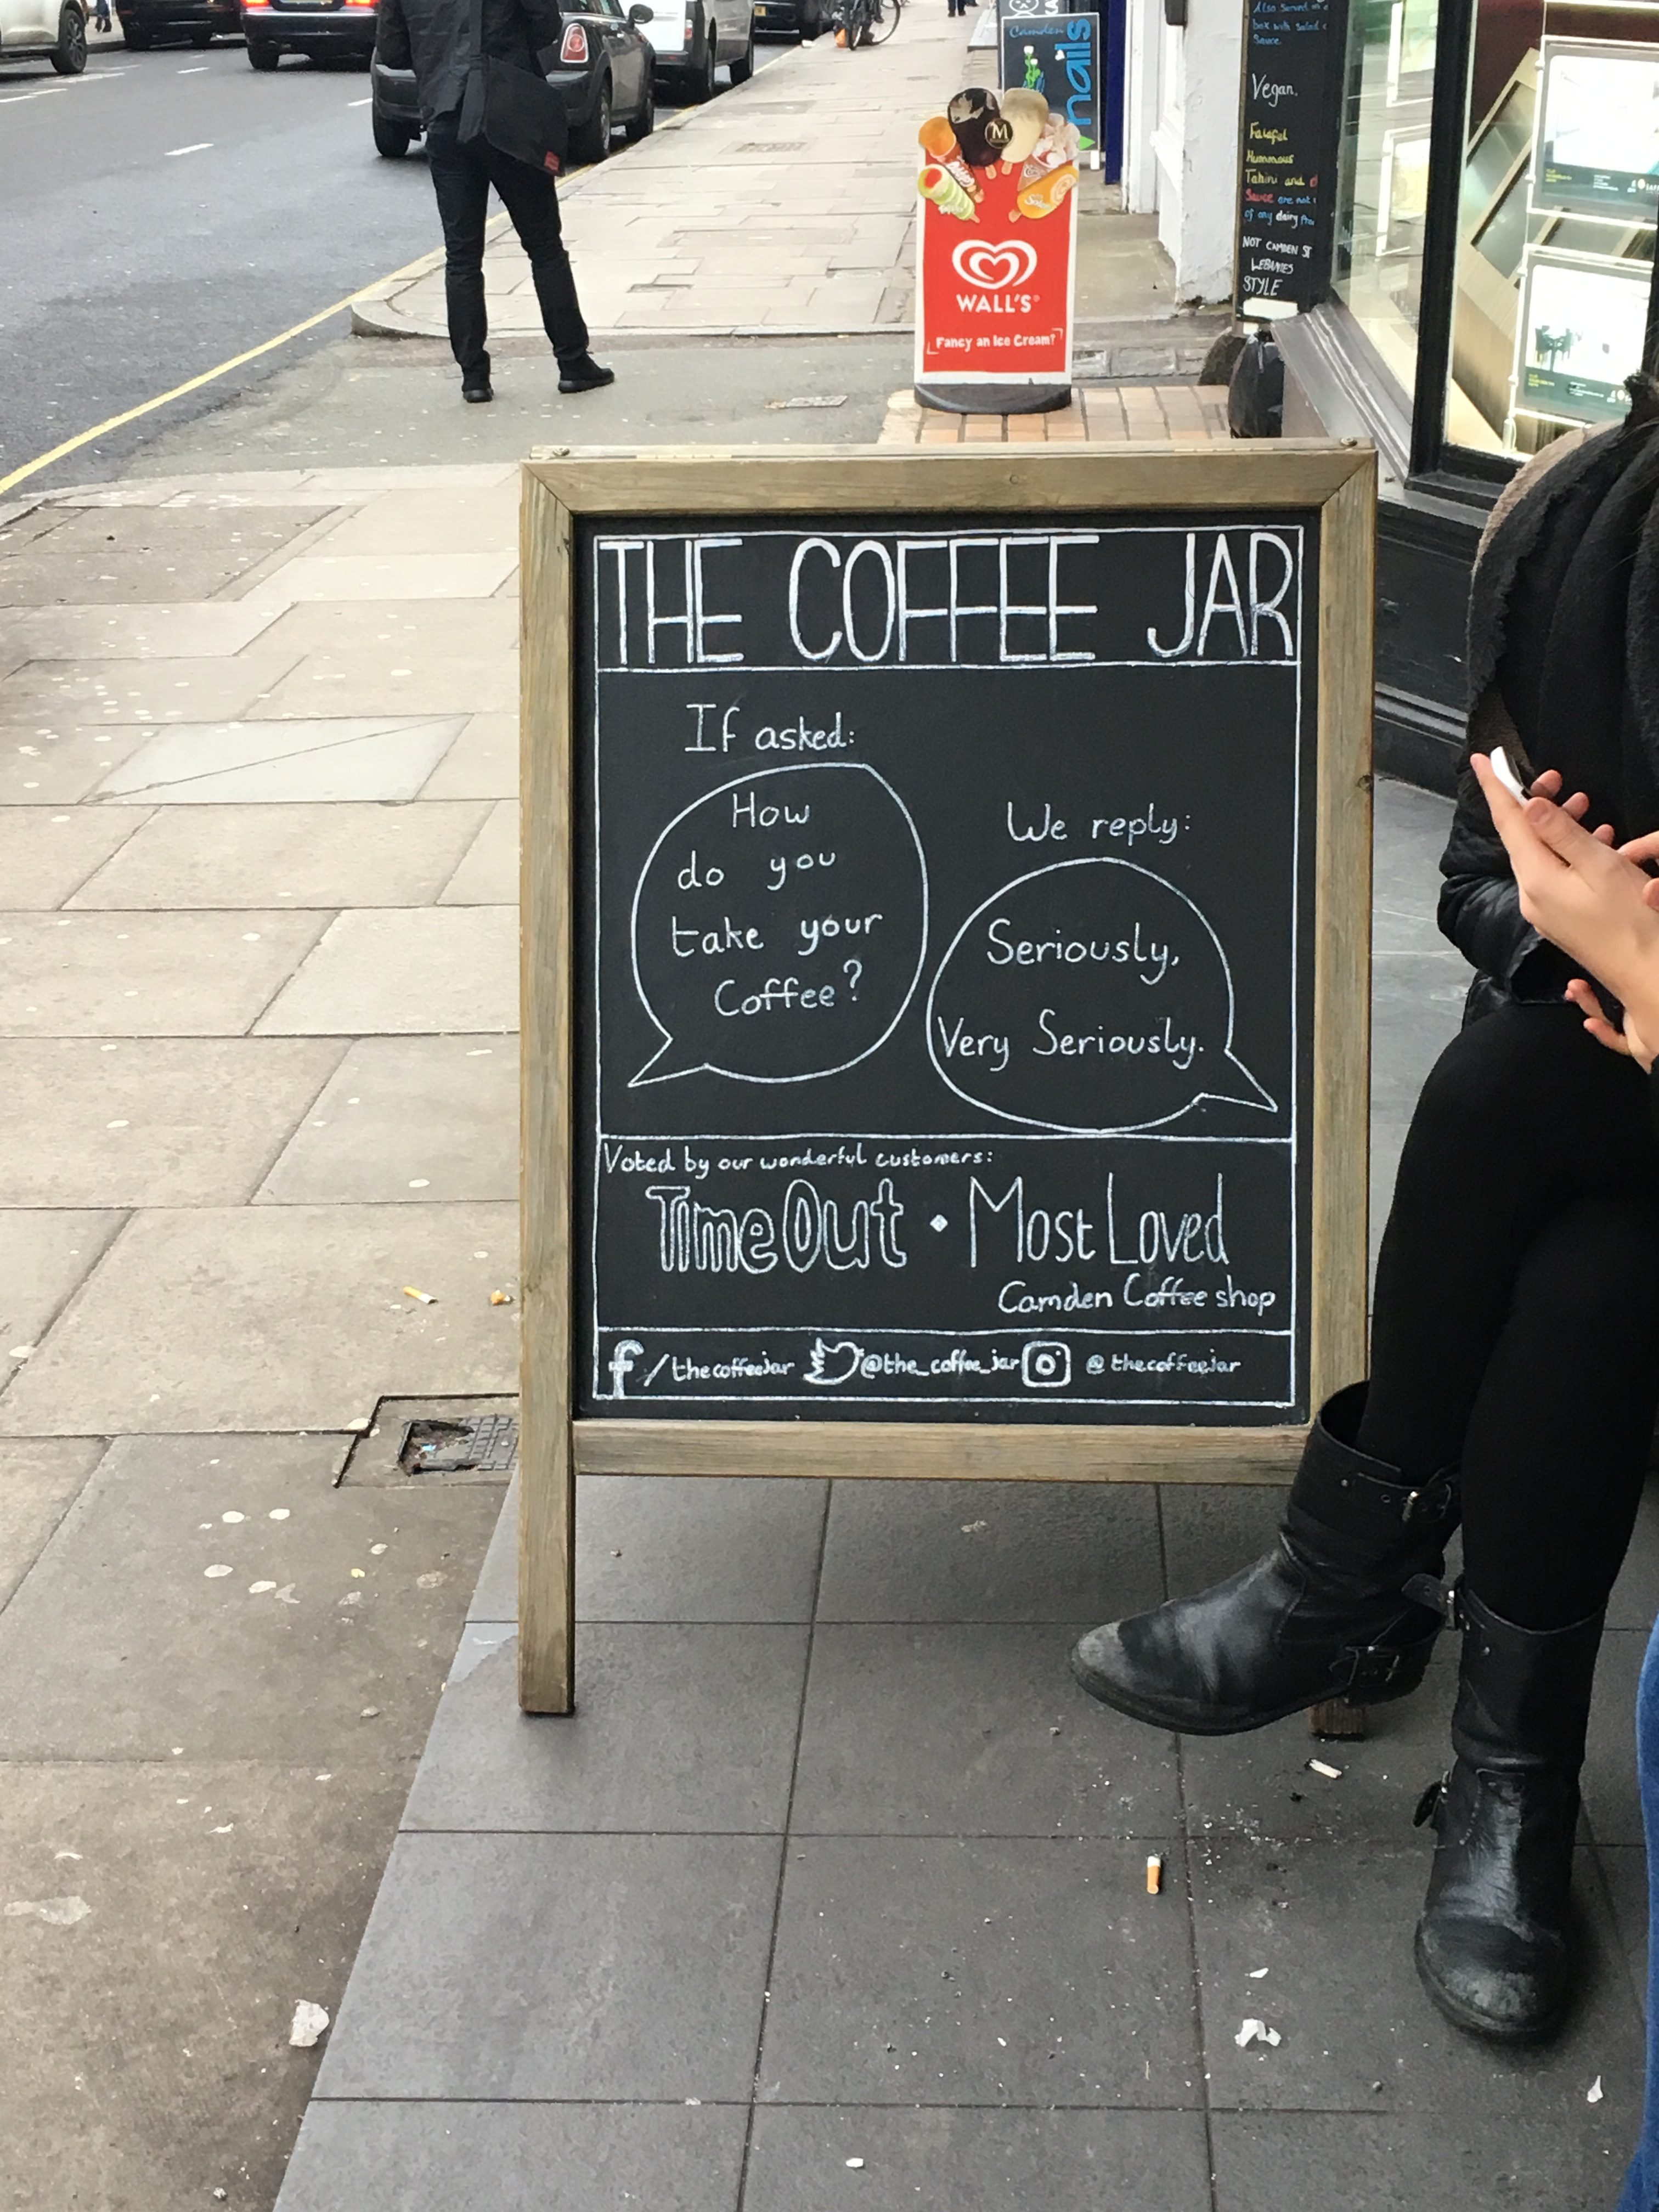 THE COFFEE JAR
If asked:
How
do you
take your
Coffee?
We reply:
Seriously,
Very Seriously.
Voted by our wonderful customers:
TimeOut • Most Loved
Camden Coffee shop
f /thecoffeejar @the_coffee_jar @thecoffeejar
WALL'S
Fancy an Ice Cream?
M
Camden
nails
Also served on a
box with salad
Sauce.
Vegan.
Falafel
Hummous
Tahini and
Sauce are not
of any dairy
NOT CAMDEN ST
LEBANES
STYLE